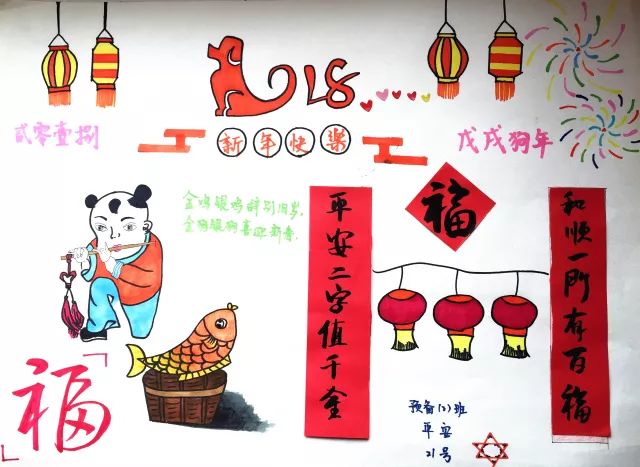 2018
贰零壹捌
新年快樂
戊戌狗年
金鸡银鸡辞别旧岁,
金狗银狗喜迎新春.
平安二字值千金
福
和顺一门有百福
「福」
预备(2)班
平安
21号